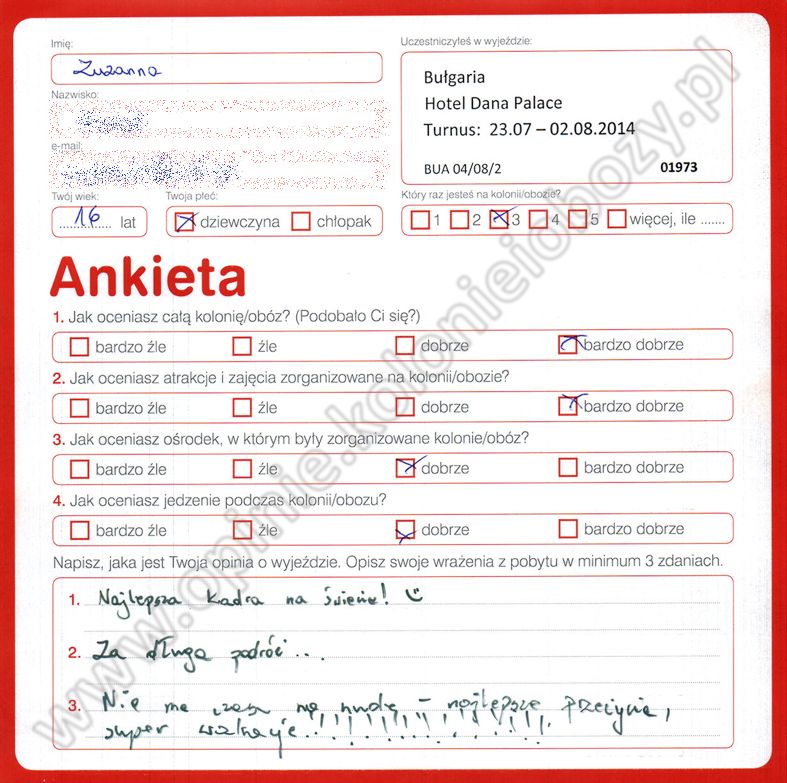 Imię:
Zuzanna
Nazwisko:
e-mail:
Twój wiek:
16 lat
Twoja płeć:
dziewczyna chłopak
Uczestniczyłeś w wyjeździe:
Bułgaria
Hotel Dana Palace
Turnus: 23.07 – 02.08.2014
BUA 04/08/2 01973
Który raz jesteś na kolonii/obozie?
1 2 3 4 5 więcej, ile .......
Ankieta
1. Jak oceniasz całą kolonię/obóz? (Podobało Ci się?)
bardzo źle źle dobrze bardzo dobrze
2. Jak oceniasz atrakcje i zajęcia zorganizowane na kolonii/obozie?
bardzo źle źle dobrze bardzo dobrze
3. Jak oceniasz ośrodek, w którym były zorganizowane kolonie/obóz?
bardzo źle źle dobrze bardzo dobrze
4. Jak oceniasz jedzenie podczas kolonii/obozu?
bardzo źle źle dobrze bardzo dobrze
Napisz, jaka jest Twoja opinia o wyjeździe. Opisz swoje wrażenia z pobytu w minimum 3 zdaniach.
1. Najlepsza kadra na świecie!
2. Za długa podróż...
3. Nie ma czasu na nudę – najlepsze przeżycia,
super wakacje..!!!!!!!!!!!!!!
www.opinie.kolonieiobozy.pl